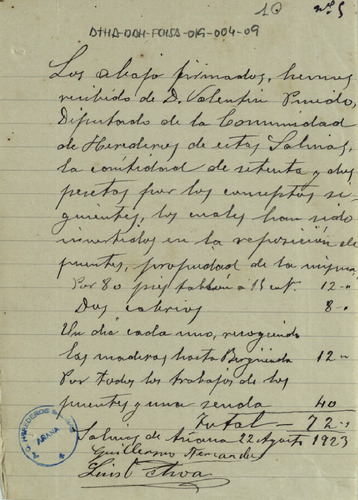 10 nº 5
ATHA-DAH-FOUSA-019-004-09
Los abajo firmados, hemos
recibido de D. Valentin Pinedo,
Diputado de la Comunidad
de Herederos de estas Salinas,
la cantidad de setenta y dos
pesetas por los conceptos si-
guientes, los cuales han sido
invertidos en la reposición de
puentes, propiedad de la misma
Por 80 pies tablon a 15 cnt. 12 -"
Dos cabrios 8 -"
Un dia cada uno, recogiendo
las maderas hasta Bergüenda 12 -"
Por todos los trabajos de los
puentes y una senda 40
Total — 72 -"
Salinas de Añana 22 Agosto 1923
Guillermo
Luis
HEREDEROS
AÑANA